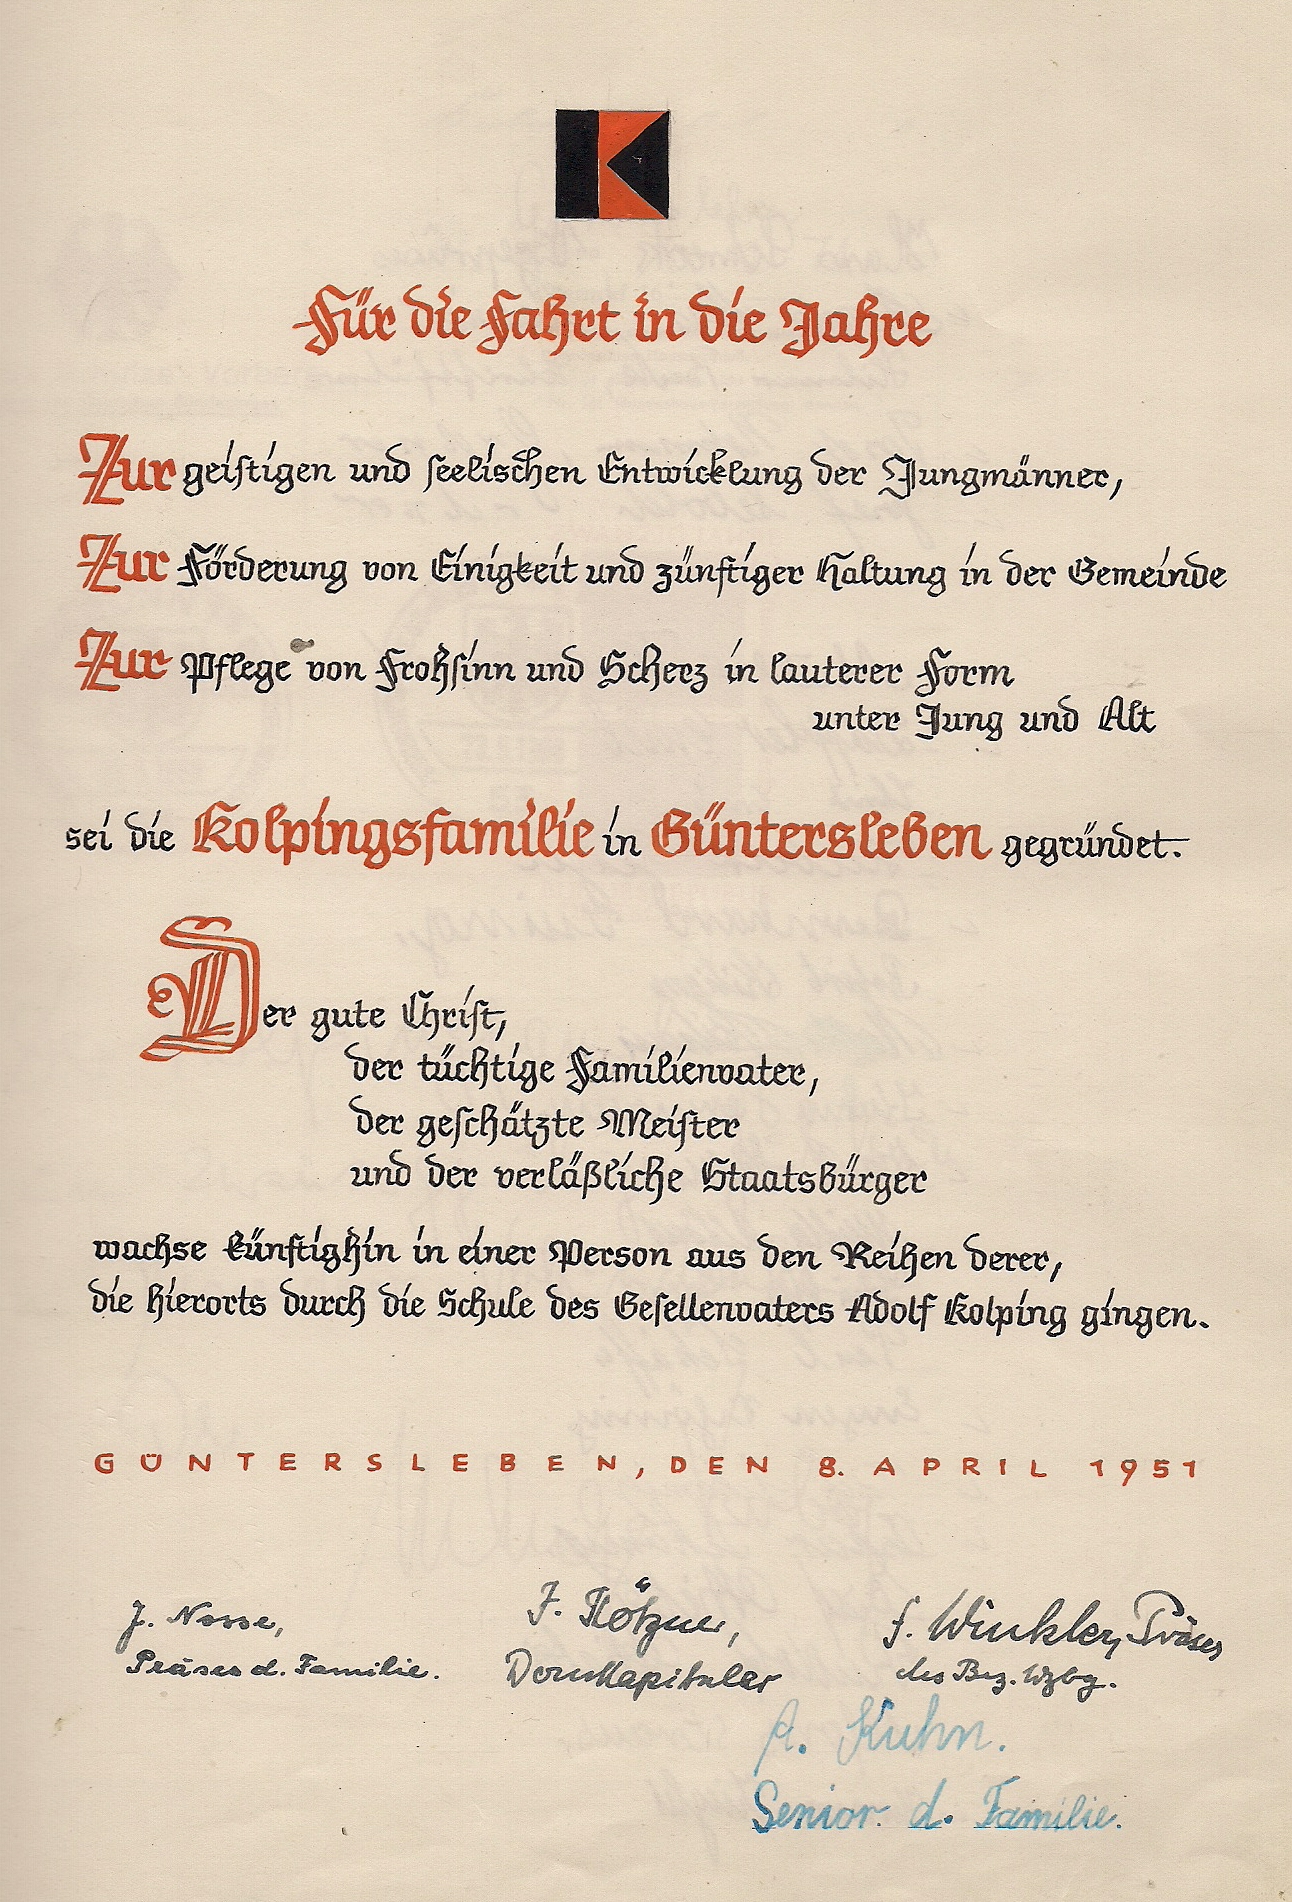 K
Für die Fahrt in die Jahre
Zur geistigen und seelischen Entwicklung der Jungmänner,
Zur Förderung von Einigkeit und zünftiger Haltung in der Gemeinde
Zur Pflege von Frohsinn und Scherz in lauterer Form
unter Jung und Alt
sei die Kolpingsfamilie in Güntersleben gegründet.
Der gute Christ,
der tüchtige Familienvater,
der geschätzte Meister
und der verläßliche Staatsbürger
wachse künftighin in einer Person aus den Reihen derer,
die hierorts durch die Schule des Gesellenvaters Adolf Kolping gingen.
GÜNTERSLEBEN, DEN 8. APRIL 1951
J.
Präses d. Familie.
F.
Domkapitular
f. Winkler, Präses
des Bez. Wzbg.
A. Kuhn.
Senior d. Familie.